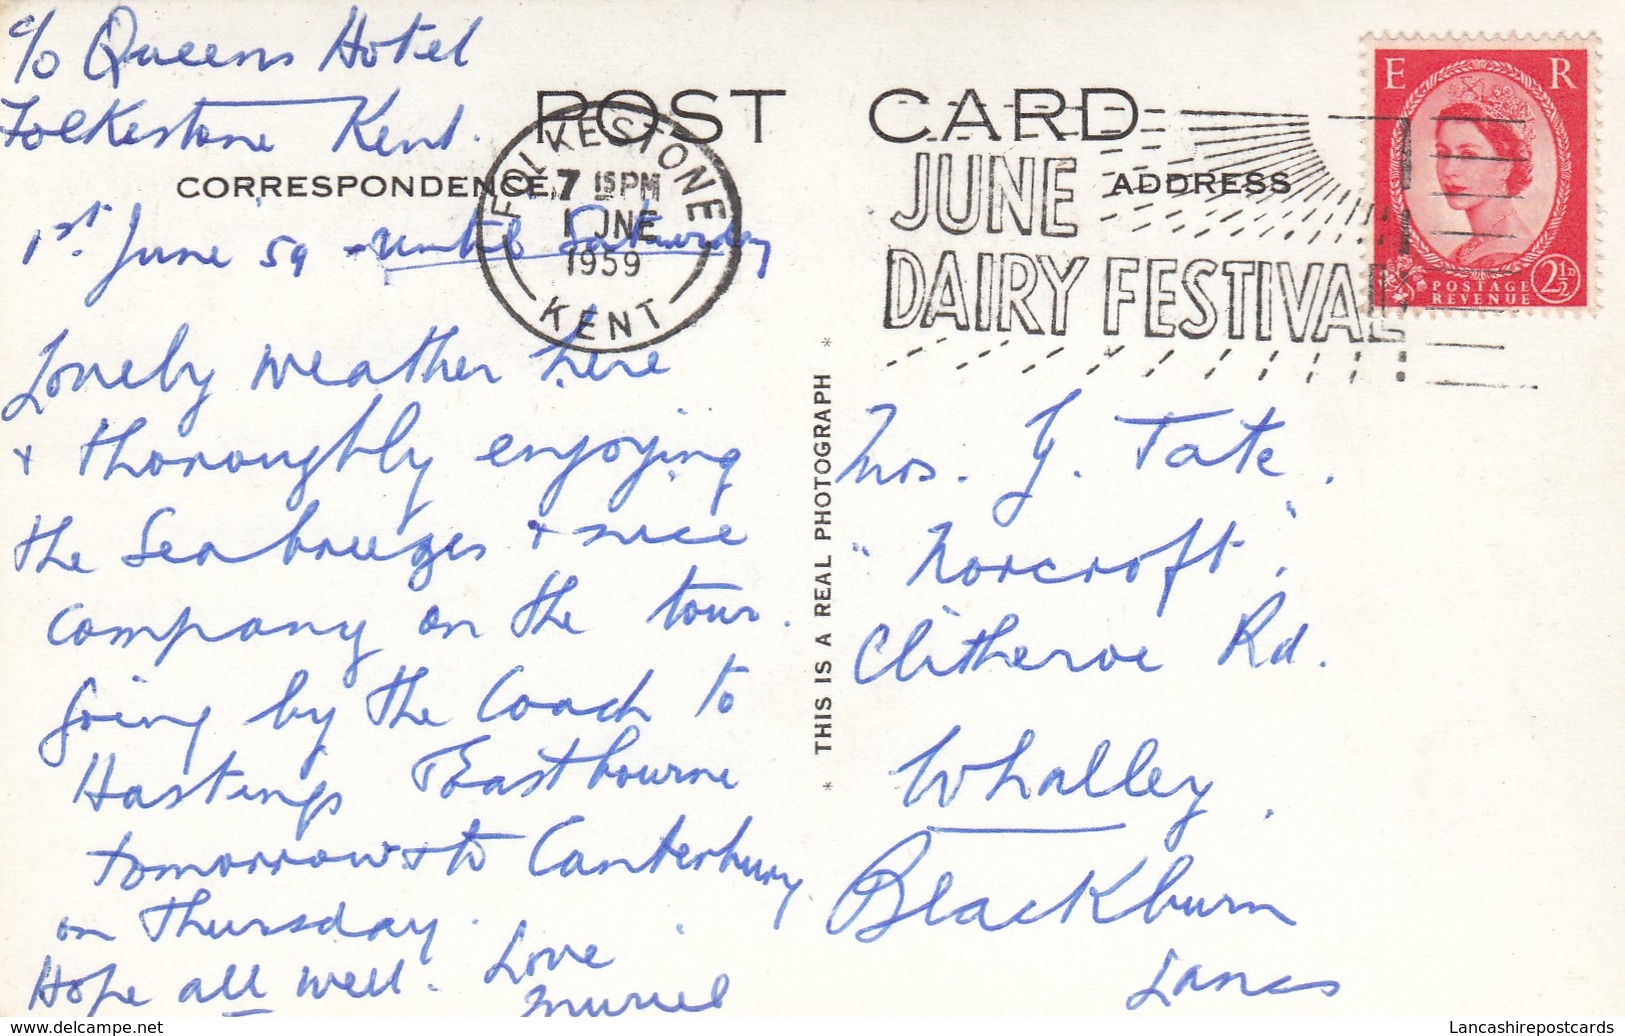 c/o Queens Hotel
Folkestone Kent.
POST CARD
CORRESPONDENCE
ADDRESS
FOLKESTONE
7 15 PM
1 JNE
1959
KENT
JUNE
DAIRY FESTIVAL
E R
POSTAGE
REVENUE
2½D
1st June 59 - until Saturday
Lovely weather here
+ thoroughly enjoying
the Sea breezes + nice
company on the tour.
Going by the Coach to
Hastings + Eastbourne
tomorrow + to Canterbury
on Thursday.
Hope all well. Love
Muriel
* THIS IS A REAL PHOTOGRAPH *
Mrs. Y. Tate.
"Norcroft".
Clitheroe Rd.
Whalley.
Blackburn
Lancs
LancashirePostcards
https://www.delcampe.net